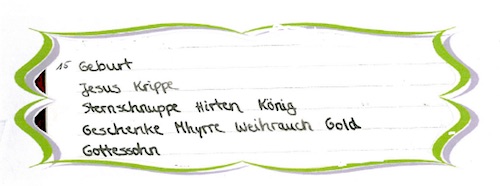 15 Geburt
Jesus Krippe
Sternschnuppe Hirten König
Geschenke Mhyrre Weihrauch Gold
Gottessohn